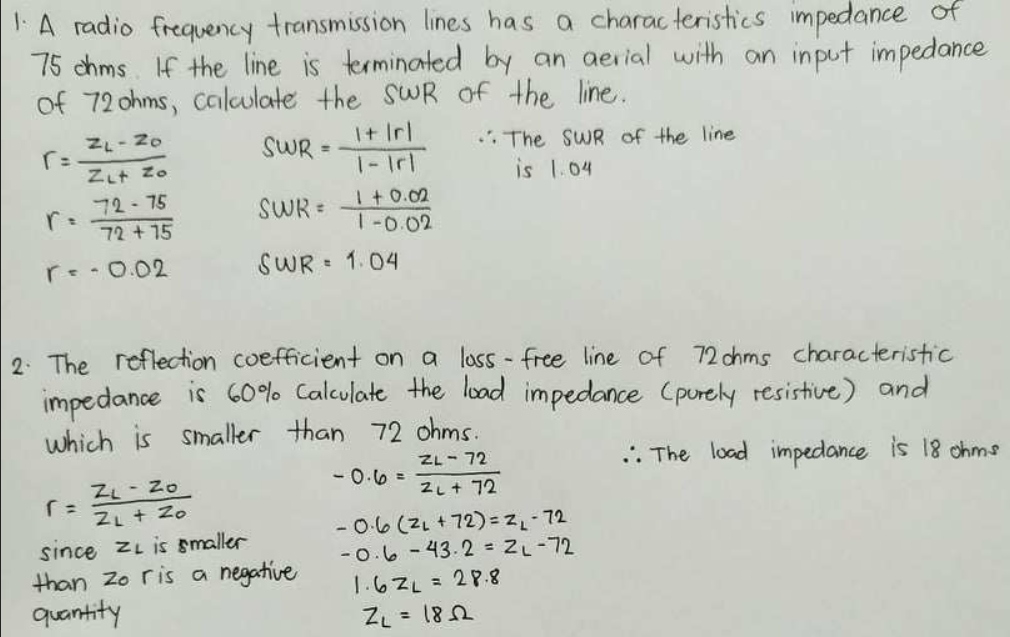 1. A radio frequency transmission lines has a characteristics impedance of
75 ohms. If the line is terminated by an aerial with an input impedance
of 72 ohms, calculate the SWR of the line.
r = (ZL - Zo) / (ZL + Zo)
r = (72 - 75) / (72 + 75)
r = - 0.02
SWR = (1 + |r|) / (1 - |r|)
SWR = (1 + 0.02) / (1 - 0.02)
SWR = 1.04
∴ The SWR of the line
is 1.04
2. The reflection coefficient on a loss - free line of 72 ohms characteristic
impedance is 60% Calculate the load impedance (purely resistive) and
which is smaller than 72 ohms.
r = (ZL - Zo) / (ZL + Zo)
since ZL is smaller
than Zo r is a negative
quantity
- 0.6 = (ZL - 72) / (ZL + 72)
- 0.6 (ZL + 72) = ZL - 72
- 0.6 - 43.2 = ZL - 72
1.6 ZL = 28.8
ZL = 18 Ω
∴ The load impedance is 18 ohms